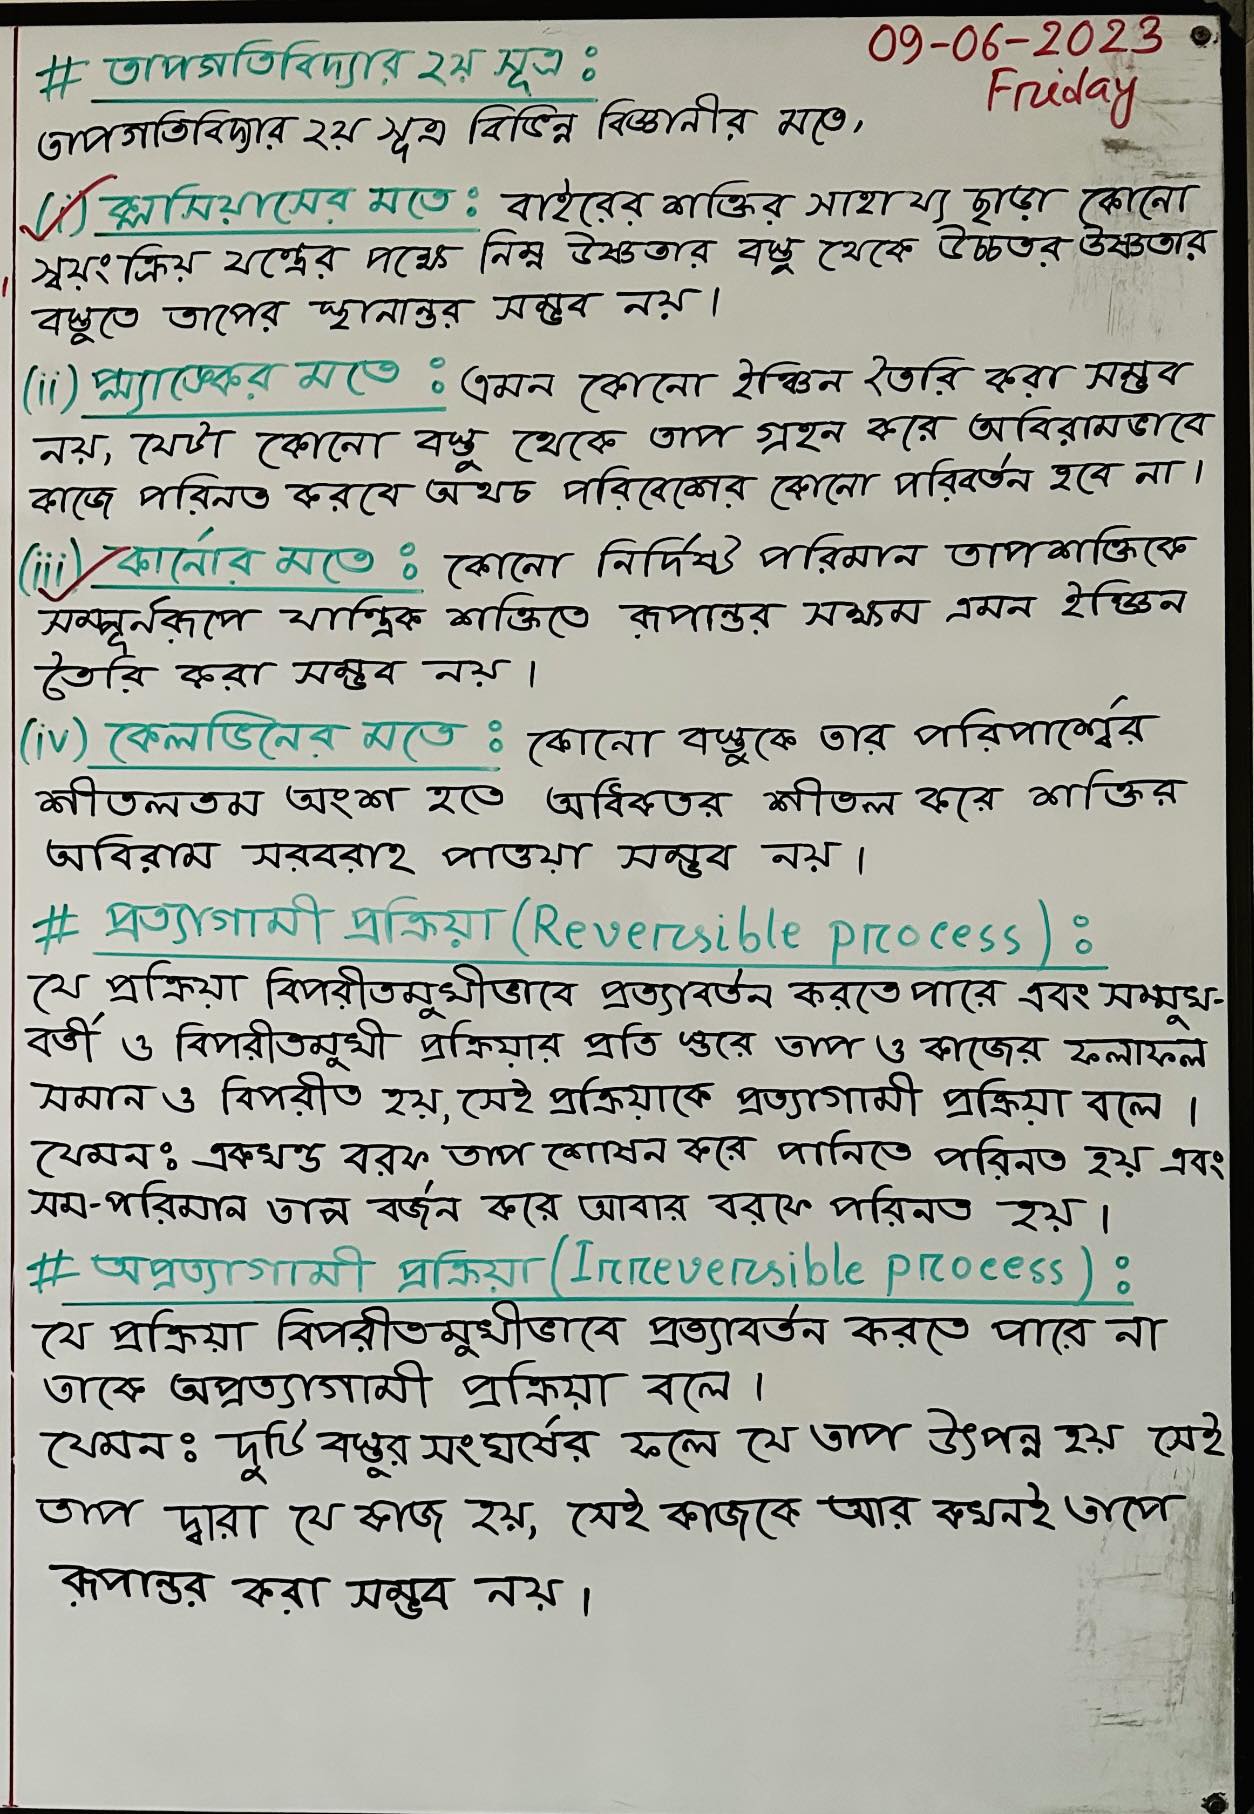 09-06-2023
Friday
# তাপগতিবিদ্যার ২য় সূত্র :
তাপগতিবিদ্যার ২য় সূত্র বিভিন্ন বিজ্ঞানীর মতে,
(i) ক্লসিয়াসের মতে : বাইরের শক্তির সাহায্য ছাড়া কোনো
স্বয়ংক্রিয় যন্ত্রের পক্ষে নিম্ন উষ্ণতার বস্তু থেকে উচ্চতর উষ্ণতার
বস্তুতে তাপের স্থানান্তর সম্ভব নয়।
(ii) প্ল্যাঙ্কের মতে : এমন কোনো ইঞ্চিন তৈরি করা সম্ভব
নয়, যেটা কোনো বস্তু থেকে তাপ গ্রহন করে অবিরামভাবে
কাজে পরিনত করবে অথচ পরিবেশের কোনো পরিবর্তন হবে না।
(iii) কার্নোর মতে : কোনো নির্দিষ্ট পরিমান তাপশক্তিকে
সম্পূর্নরূপে যান্ত্রিক শক্তিতে রূপান্তর সক্ষম এমন ইঞ্জিন
তৈরি করা সম্ভব নয়।
(iv) কেলভিনের মতে : কোনো বস্তুকে তার পরিপার্শ্বের
শীতলতম অংশ হতে অধিকতর শীতল করে শক্তির
অবিরাম সরবরাহ পাওয়া সম্ভব নয়।
# প্রত্যাগামী প্রক্রিয়া (Reversible process) :
যে প্রক্রিয়া বিপরীতমুখীভাবে প্রত্যাবর্তন করতে পারে এবং সম্মুখ-
বর্তী ও বিপরীতমুখী প্রক্রিয়ার প্রতি স্তরে তাপ ও কাজের ফলাফল
সমান ও বিপরীত হয়, সেই প্রক্রিয়াকে প্রত্যাগামী প্রক্রিয়া বলে।
যেমনঃ একখন্ড বরফ তাপ শোষন করে পানিতে পরিনত হয় এবং
সম-পরিমান তাপ বর্জন করে আবার বরফে পরিনত হয়।
# অপ্রত্যাগামী প্রক্রিয়া (Irreversible process) :
যে প্রক্রিয়া বিপরীতমুখীভাবে প্রত্যাবর্তন করতে পারে না
তাকে অপ্রত্যাগামী প্রক্রিয়া বলে।
যেমনঃ দুটি বস্তুর সংঘর্ষের ফলে যে তাপ উৎপন্ন হয় সেই
তাপ দ্বারা যে কাজ হয়, সেই কাজকে আর কখনই তাপে
রূপান্তর করা সম্ভব নয়।